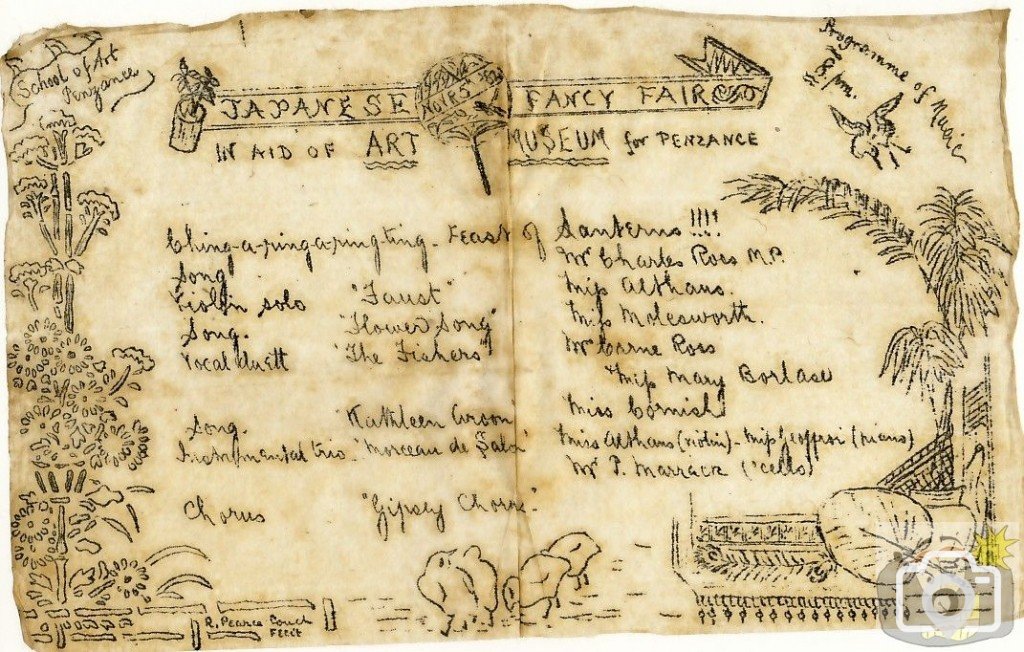 School of Art
Penzance
Programme of Music
8. p.m.
JAPANESE FANCY FAIR
IN AID OF ART MUSEUM for PENZANCE
Ching-a-ring-a-ring-ting - Feast of Lanterns !!!!
Song Mr Charles Ross M.P.
Violin solo "Faust" Miss Althaus.
Song. "Flower Song" Miss Molesworth.
Vocal duett "The Fishers" Mr Carne Ross
Miss Mary Borlase
Song. Kathleen Miss Cornish
Instrumental trio. "Morceau de Salon" Miss Althaus (violin) - Miss (piano)
Mr P. Marrack ('cello)
Chorus "Gipsey
R. Pearce Couch
Fecit